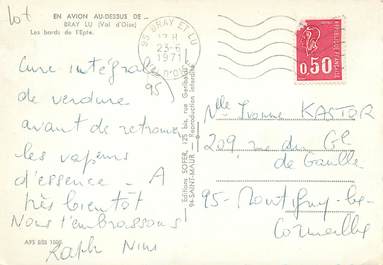 Lot
EN AVION AU-DESSUS DE ...
BRAY LU (Val d'Oise)
Les bords de l'Epte.
95 BRAY ET LU
12 H
23-6
1971
D'OISE
0,50
Cure intégrale
95
de verdure
avant de retrouver
les vapeurs
d'essence - A
très bientôt
Nous t'embrassons
Raph Nini
A95 BIS 1008
Editions SOFER, 125 bis, rue Garibaldi
94-SAINT-MAUR - Reproduction interdite
Mlle Yvonne KASTOR
209, rue du Gl
de Gaulle
95- Montigny-les-
Cormeilles